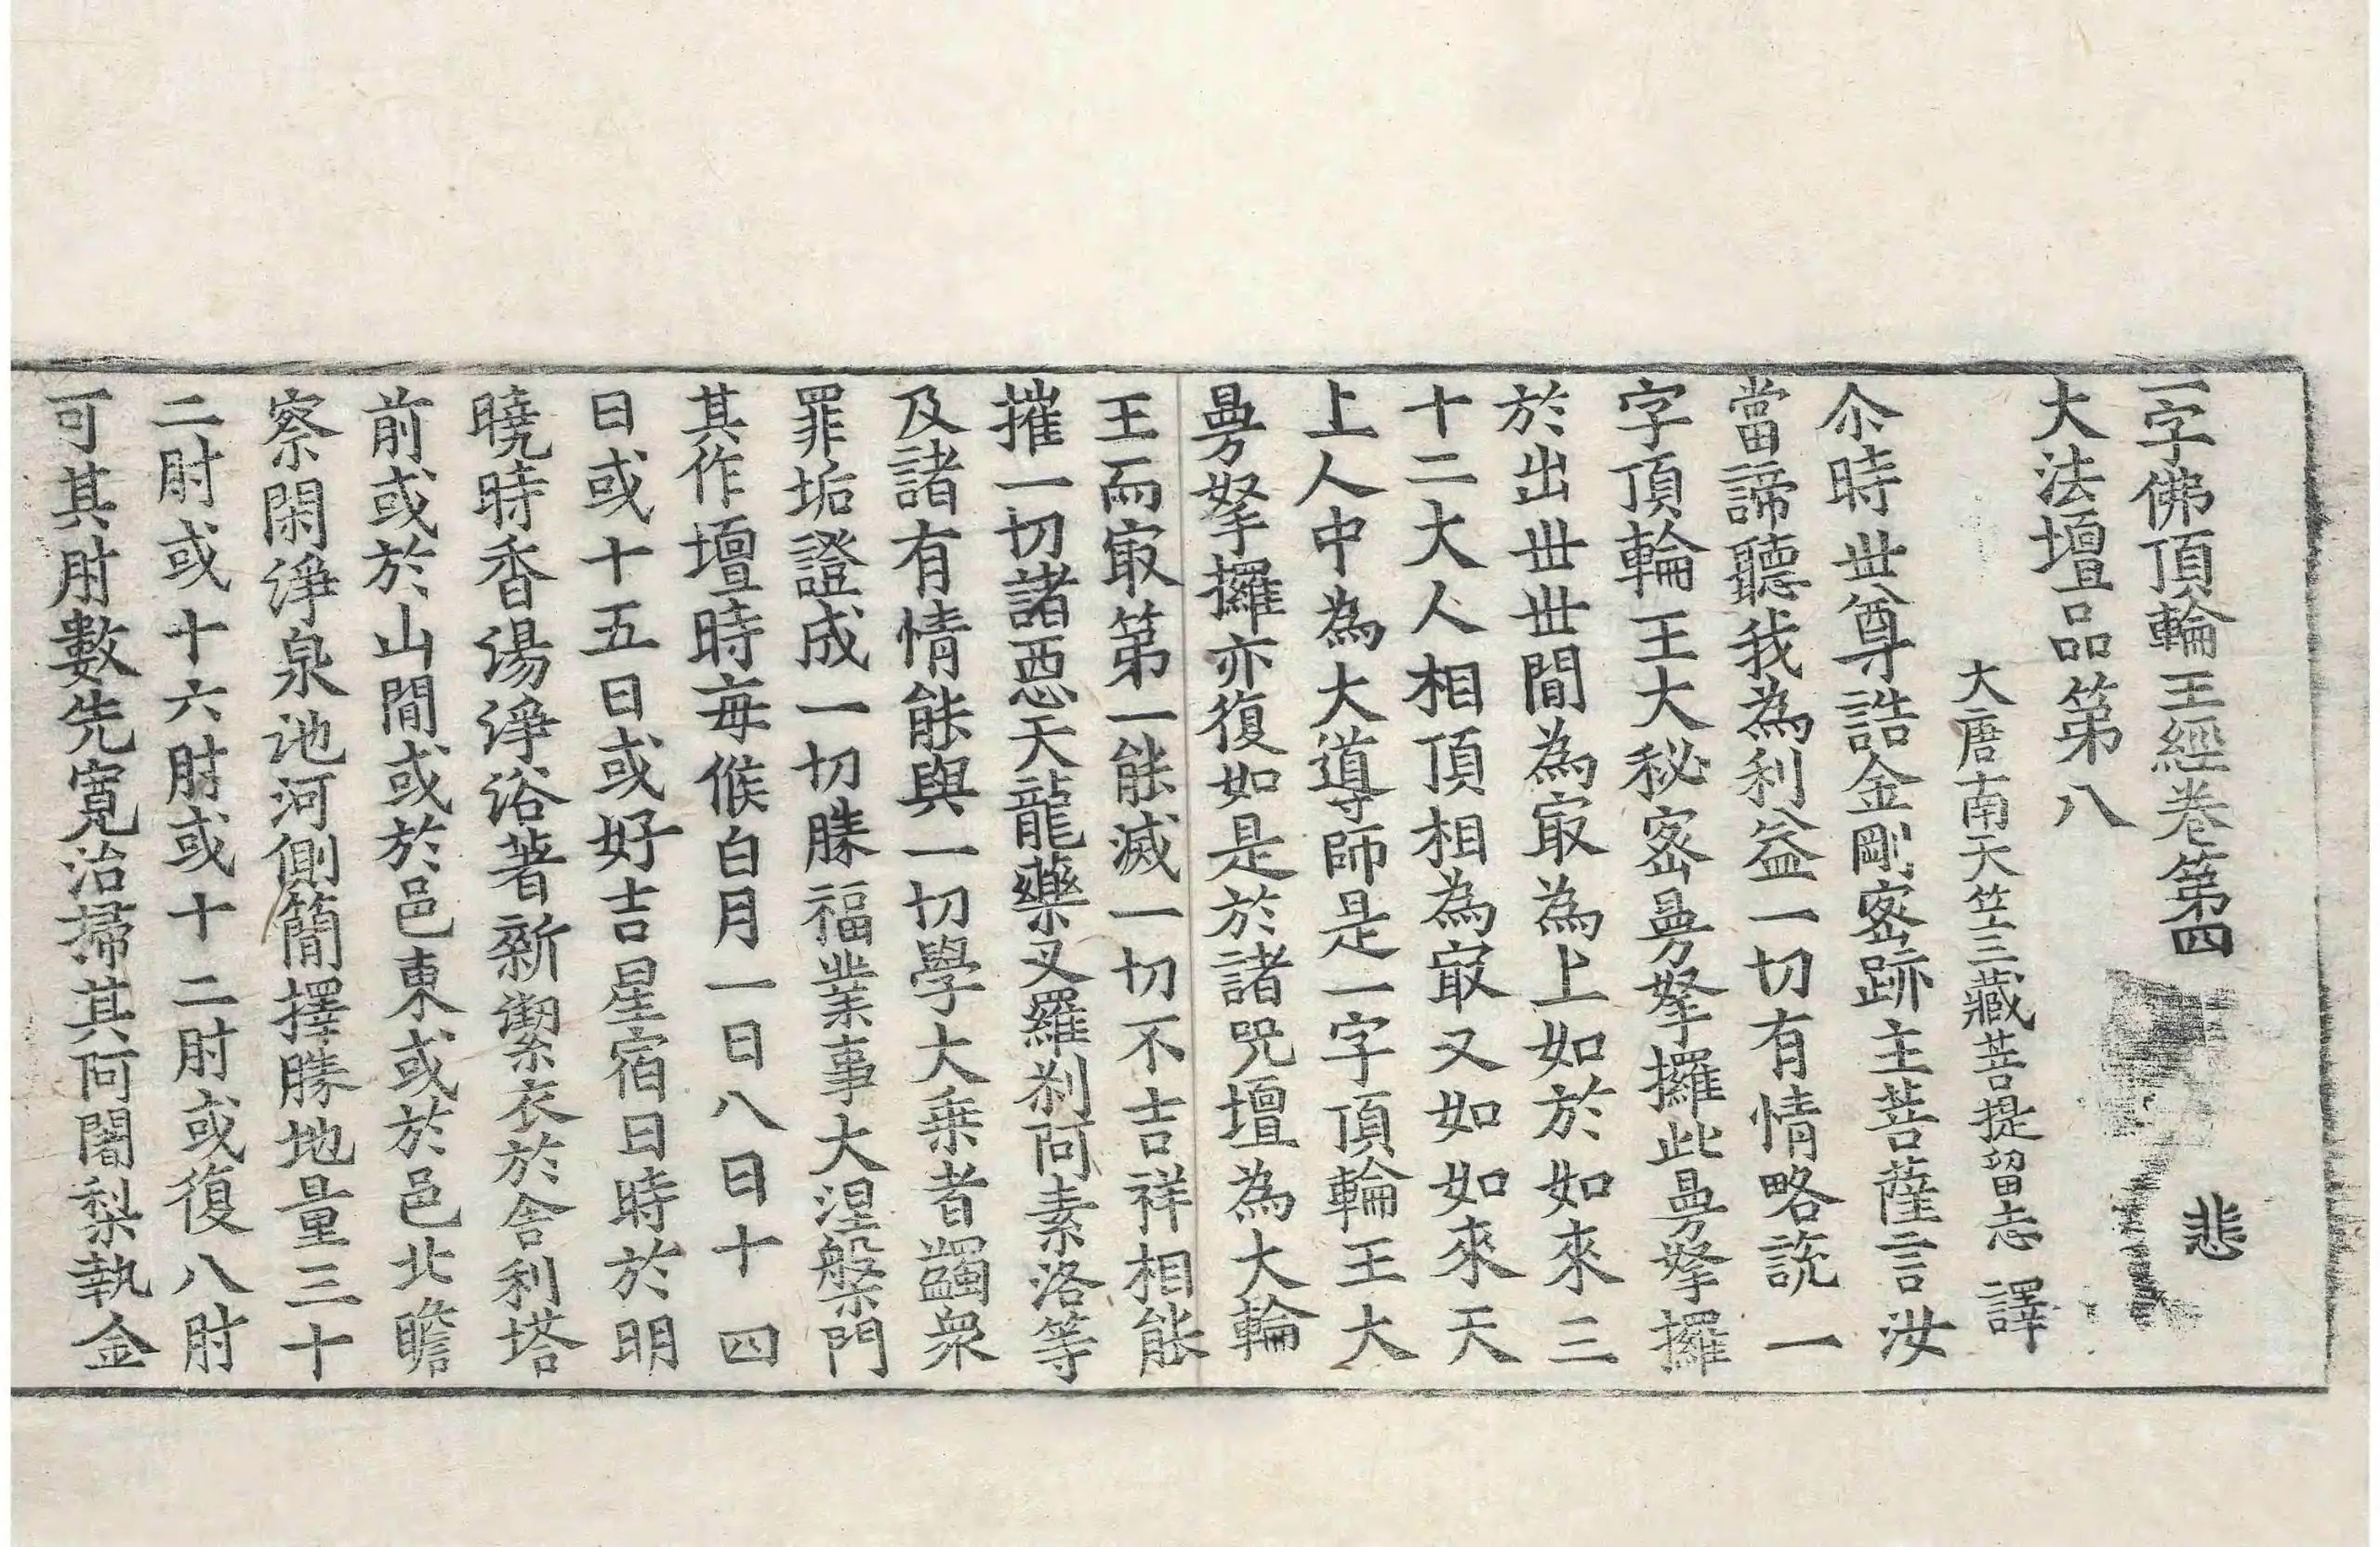 一字佛頂輪王經卷第四 悲
大法壇品第八
大唐南天竺三藏菩提留志 譯
尒時世尊誥金剛密跡主菩薩言汝
當諦聽我為利益一切有情略說一
字頂輪王大秘密曼拏攞此曼拏攞
於出世世間為㝡為上如於如來三
十二大人相頂相為㝡又如如來天
上人中為大導師是一字頂輪王大
曼拏攞亦復如是於諸呪壇為大輪
王而㝡第一能滅一切不吉祥相能
摧一切諸惡天龍藥叉羅剎阿素洛等
及諸有情能與一切學大乘者蠲眾
罪垢證成一切勝福業事大涅槃門
其作壇時每候白月一日八日十四
日或十五日或好吉星宿日時於明
曉時香湯淨浴著新潔衣於舍利塔
前或於山間或於邑東或於邑北瞻
察閑淨泉池河側簡擇勝地量三十
二肘或十六肘或十二肘或復八肘
可其肘數先寬治掃其阿闍梨執金